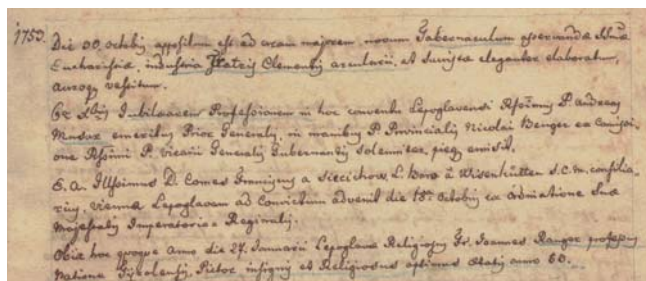 1753. Die 30. octobris appositum est ad aram majorem novum Tabernaculum asservandae SSmae
Eucharistiae, industria Fratris Clementis arcularii, et Sunistae eleganter elaboratum,
auroque vestitum.
Jubilaeam Professionem in hoc conventu Lepoglavensi P. Andreas
Musar emeritus Prior Generalis, in manibus P. Provincialis Nicolai Benger ex Commissi-
one P. Vicarii Generalis Gubernantis solemniter, pieque emisit.
D. Comes a L. Baro a S. C. M. consilia-
rius, Vienna Lepoglavam ad Convictum advenit die 18. octobris ex ordinatione Suae
Majestatis Imperatoriae Reginalis.
Obiit hoc quoque anno die 27. Januarii Lepoglavae Religiosus Fr. Joannes Ranger professus
natione Tyrolensis, Pictor insignis et Religiosus optimus aetatis anno 53.